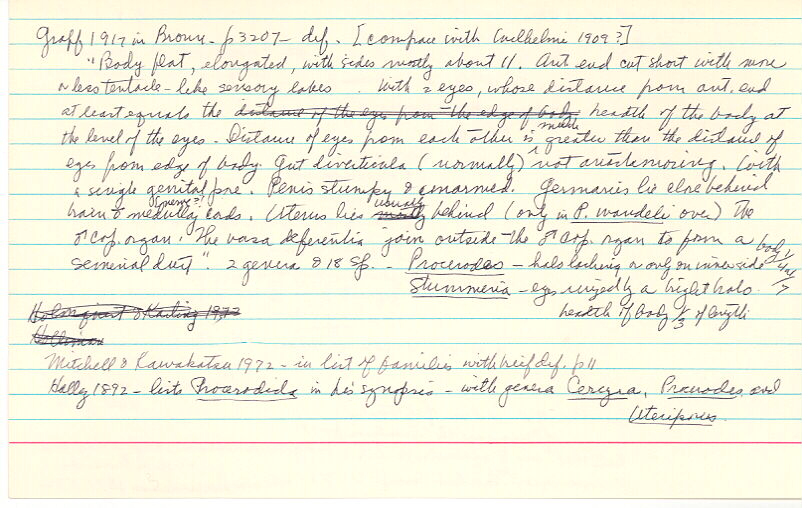 Graff 1917 in Bronn - p3207 - def. [compare with Wilhelmi 1909?]
"Body flat, elongated, with sides mostly about 11. Ant end cut short with more
or less tentacle-like sensory lobes. With 2 eyes, whose distance from ant. end
at least equals the distance of the eyes from the edge of body breadth of the body at
the level of the eyes. Distance of eyes from each other is much greater than the distance of
eyes from edge of body. Gut diverticula (normally) not anastomosing. With
a single genital pore. Penis stumpy & unarmed. Germaria lie close behind
brain & medullary cords. Uterus lies mostly usually behind (only in P. wandeli over) the
♂ cop. organ. The vasa deferentia join outside the ♂ cop. organ to form a
seminal duct". 2 genera & 18 sp. - Procerodes - halo lacking or only on inner side
Stummeria - eyes ringed by a bright halo.
breadth of body 1/3 of length
Holmquist & Karling 1972
Holliman
Mitchell & Kawakatsu 1972 - in list of families with brief def. p11
Hallez 1892 - lists Procerodida in his synopsis - with genera Cercyra, Procerodes and
Uteriporus